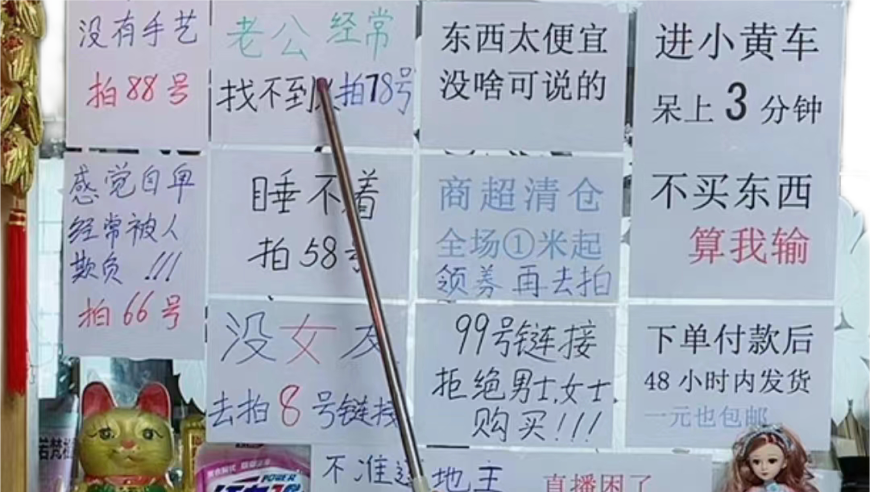 没有手艺
拍88号
老公经常
找不到 拍78号
东西太便宜
没啥可说的
进小黄车
呆上3分钟
不买东西
算我输
感觉自卑
经常被人
欺负!!!
拍66号
睡不着
拍58号
商超清仓
全场①米起
领券再去拍
没女友
去拍8号链接
99号链接
拒绝男士,女士
购买!!!
下单付款后
48小时内发货
一元也包邮
不准 地主
直播困了
POWER